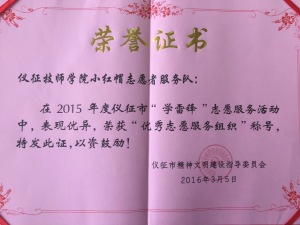 荣誉证书
仪征技师学院小红帽志愿者服务队：
在2015年度仪征市“学雷锋”志愿服务活动
中，表现优异，荣获“优秀志愿服务组织”称号，
特发此证，以资鼓励！
仪征市精神文明建设指导委员会
2016年3月5日